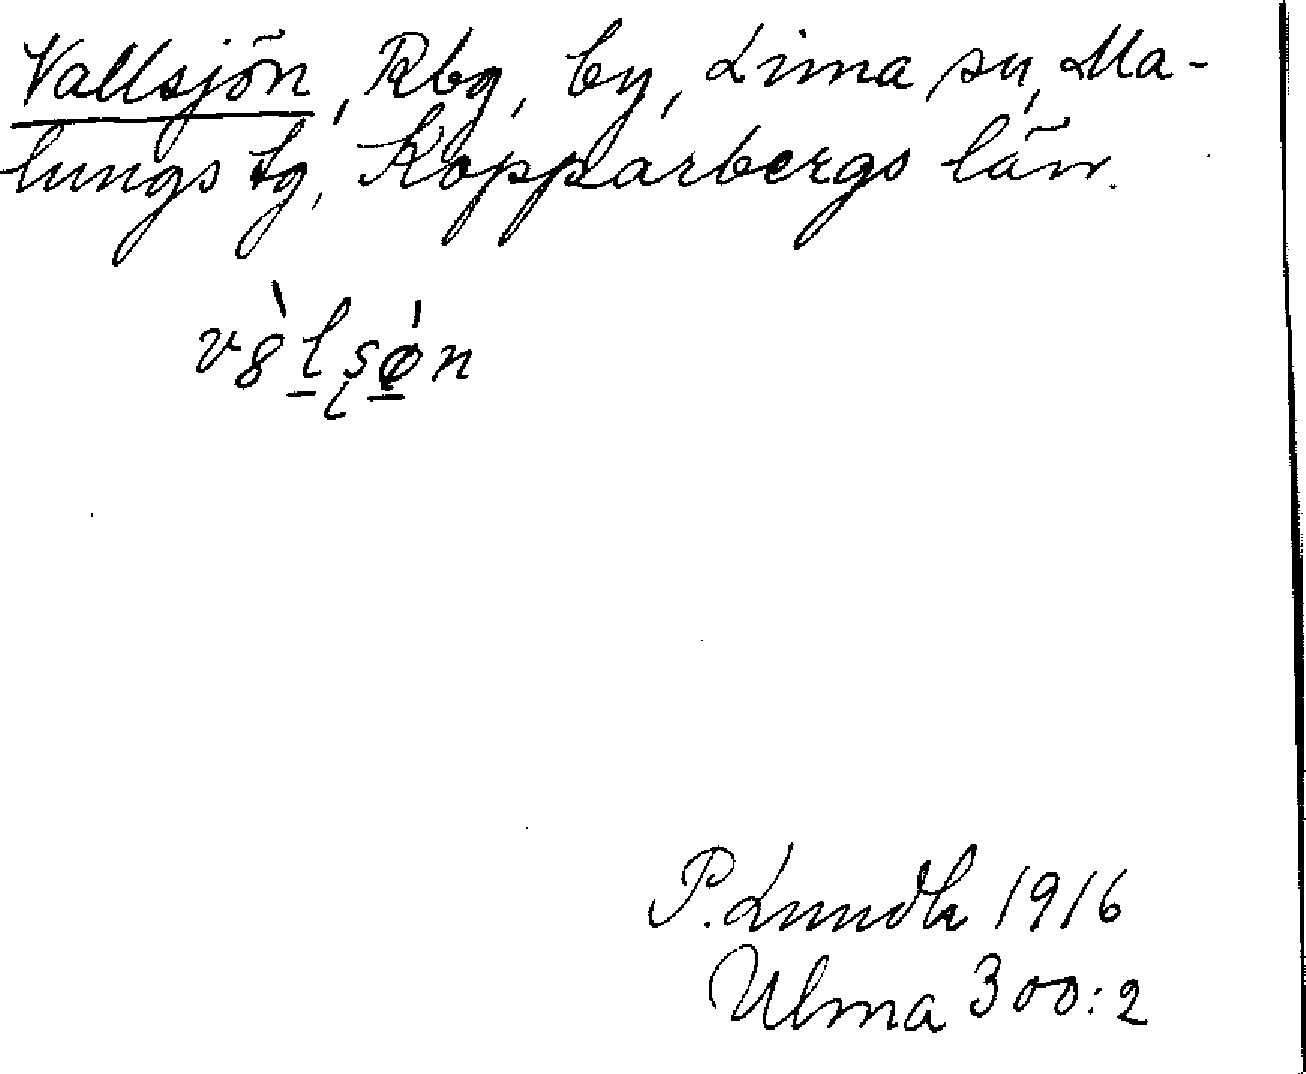 Vallsjön, Rbg, by, Lima sn, Ma-
lungs tg, Kopparbergs län.
P. Lundh 1916
Ulma 300:2